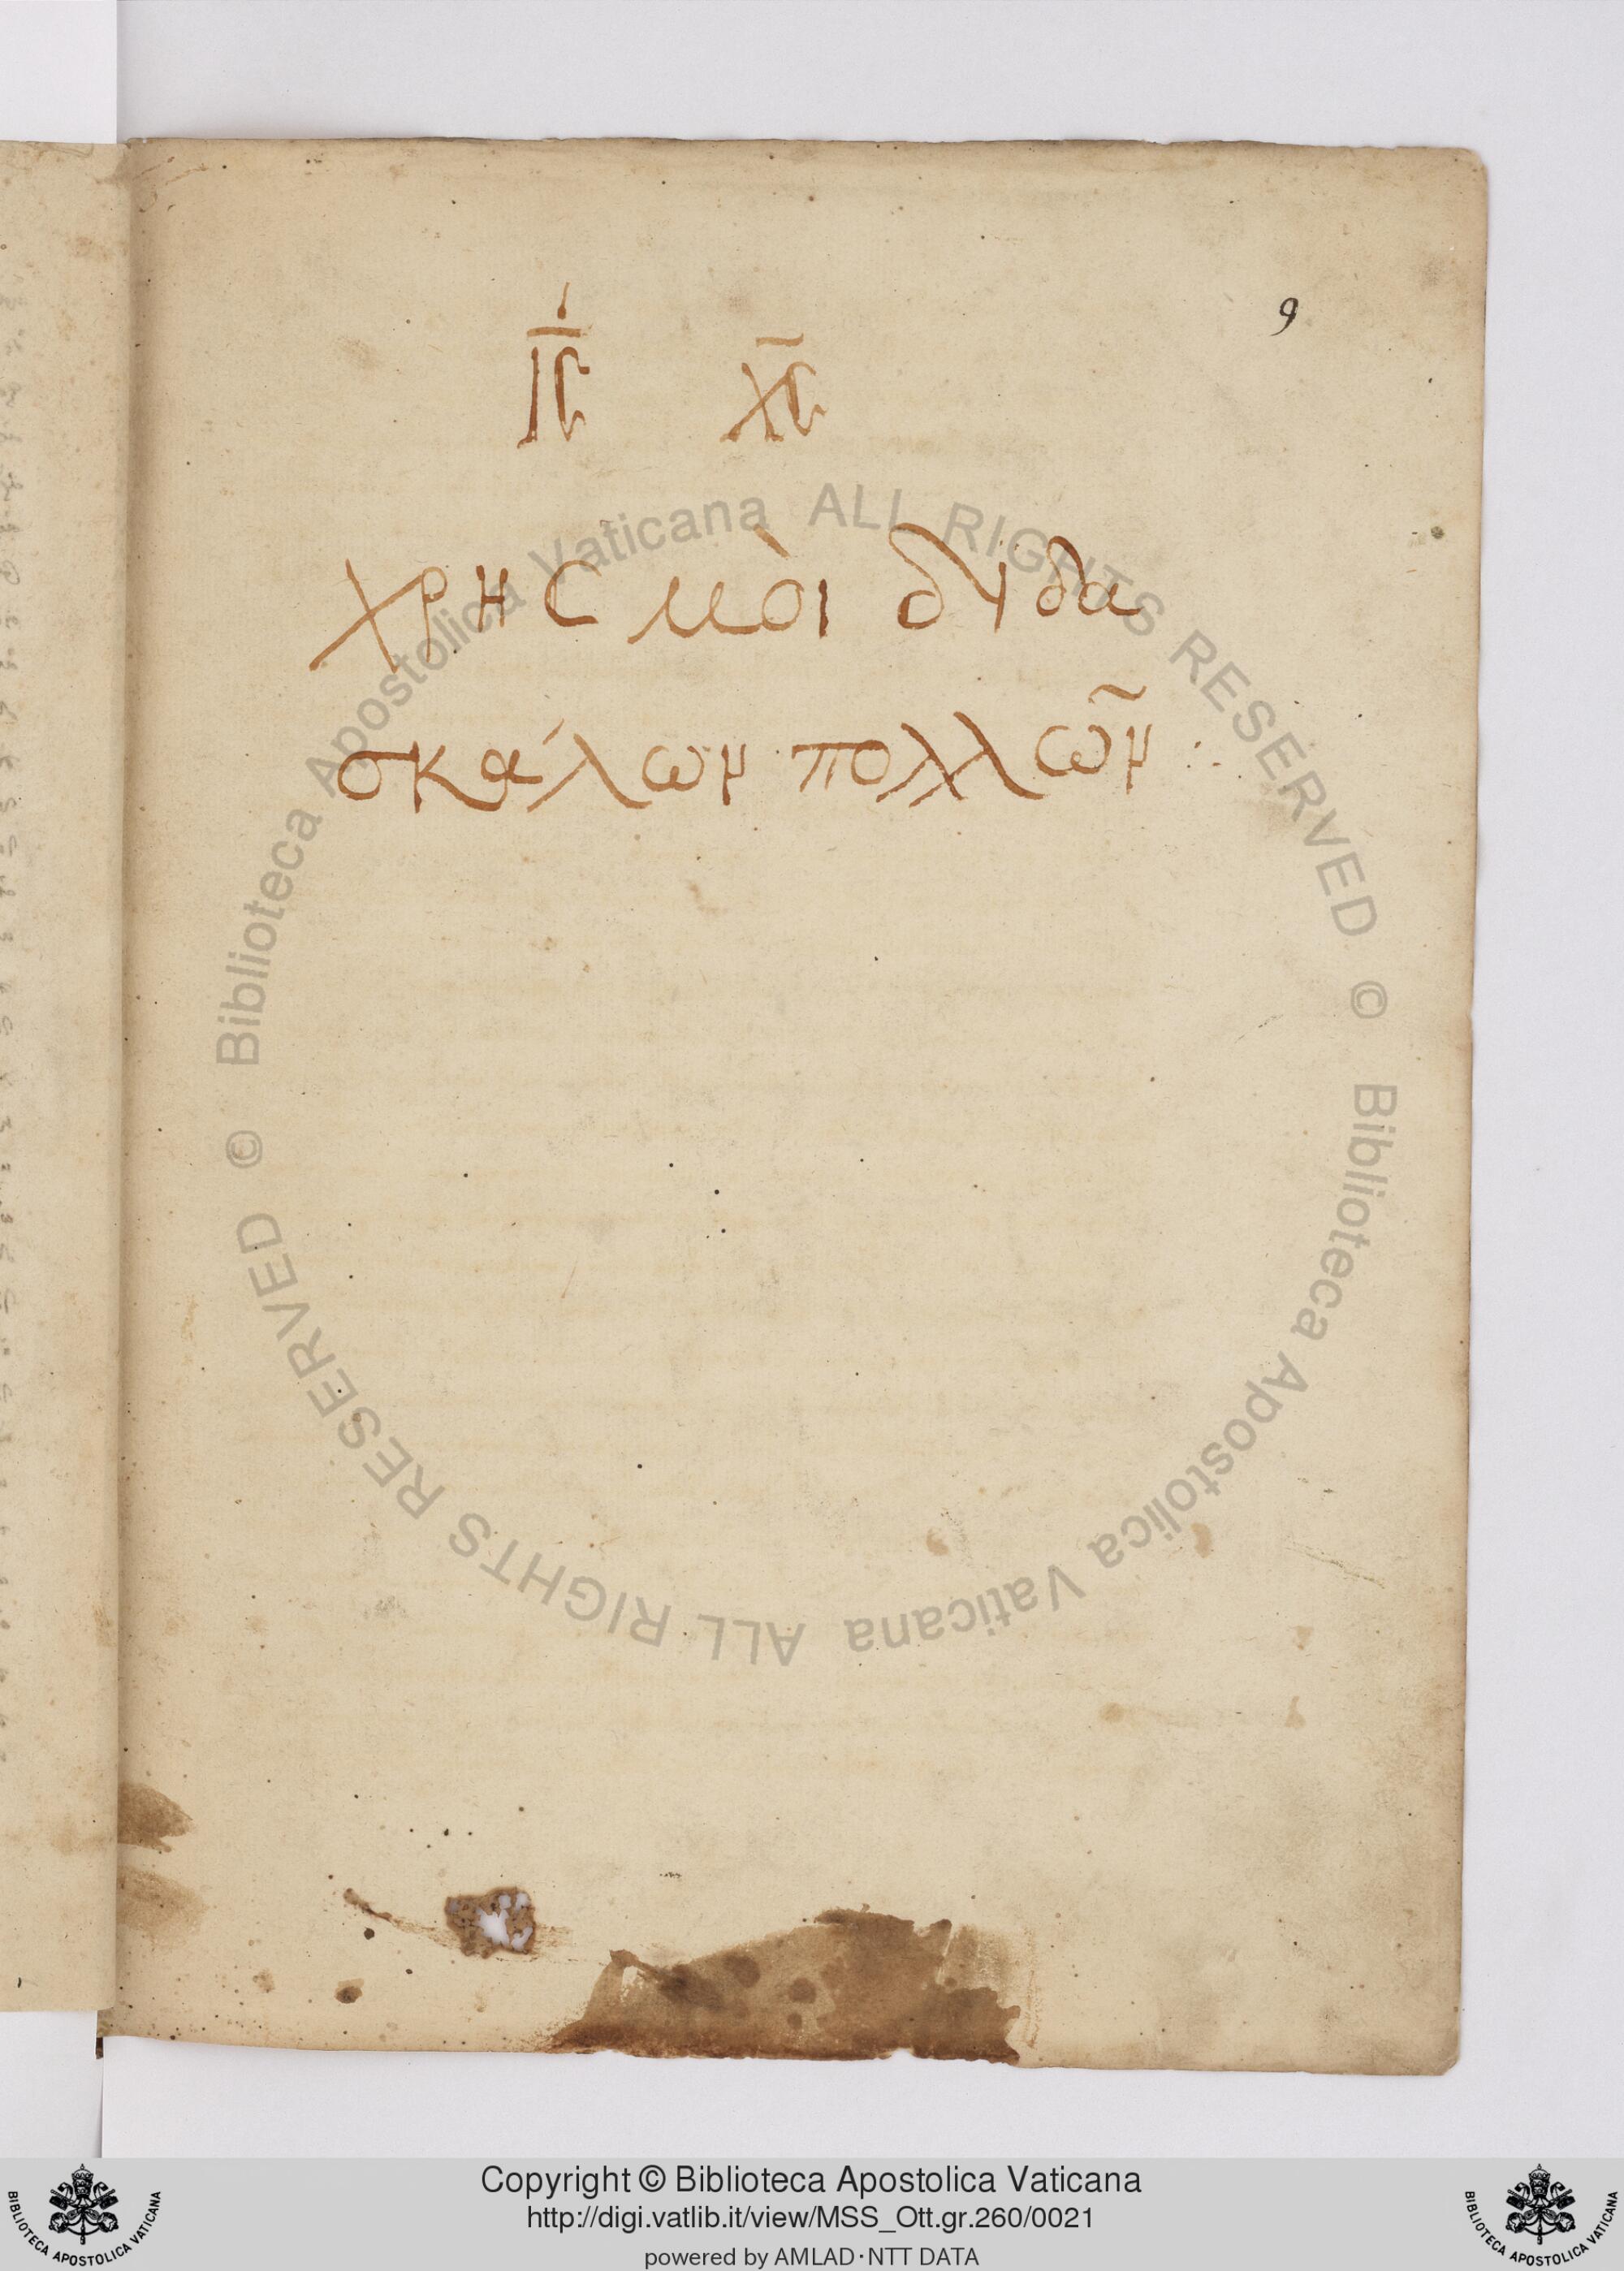 9
ις χς
χρησμὸι δηδα
σκάλων πολλῶν :.
© Biblioteca Apostolica Vaticana ALL RIGHTS RESERVED © Biblioteca Apostolica Vaticana ALL RIGHTS RESERVED
Copyright © Biblioteca Apostolica Vaticana
http://digi.vatlib.it/view/MSS_Ott.gr.260/0021
powered by AMLAD·NTT DATA
BIBLIOTECA APOSTOLICA VATICANA
BIBLIOTECA APOSTOLICA VATICANA